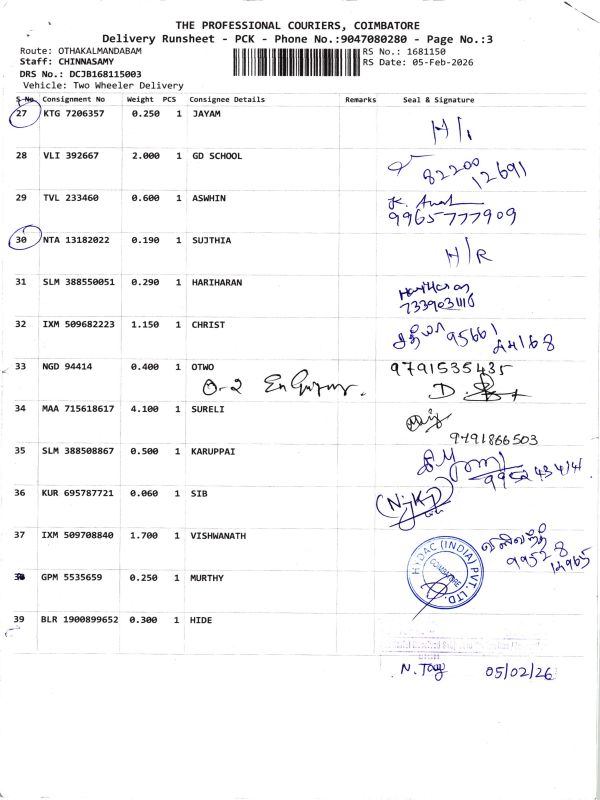 THE PROFESSIONAL COURIERS, COIMBATORE
Delivery Runsheet - PCK - Phone No.:9047080280 - Page No.:3
Route: OTHAKALMANDABAM RS No.: 1681150
Staff: CHINNASAMY RS Date: 05-Feb-2026
DRS No.: DCJB168115003
Vehicle: Two Wheeler Delivery
S No. Consignment No Weight PCS Consignee Details Remarks Seal & Signature
27 KTG 7206357 0.250 1 JAYAM
28 VLI 392667 2.000 1 GD SCHOOL
82200
12691
29 TVL 233460 0.600 1 ASWHIN
9965777909
30 NTA 13182022 0.190 1 SUJTHIA H/R
31 SLM 388550051 0.290 1 HARIHARAN
Hariharan
32 IXM 509682223 1.150 1 CHRIST
33 NGD 94414 0.400 1 OTWO 9791535435
O-2
34 MAA 715618617 4.100 1 SURELI
9791866503
35 SLM 388508867 0.500 1 KARUPPAI
36 KUR 695787721 0.060 1 SIB
37 IXM 509708840 1.700 1 VISHWANATH
99528
12965
HYDAC (INDIA) PVT. LTD.
COIMBATORE
38 GPM 5535659 0.250 1 MURTHY
39 BLR 1900899652 0.300 1 HIDE
05/02/26